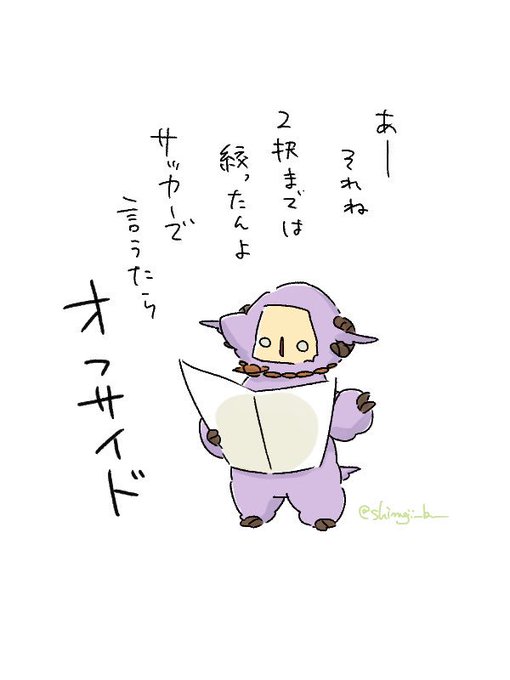 あー
それね
2択までは
絞ったんよ
サッカーで
言うたら
オフサイド
@shimeji_b_